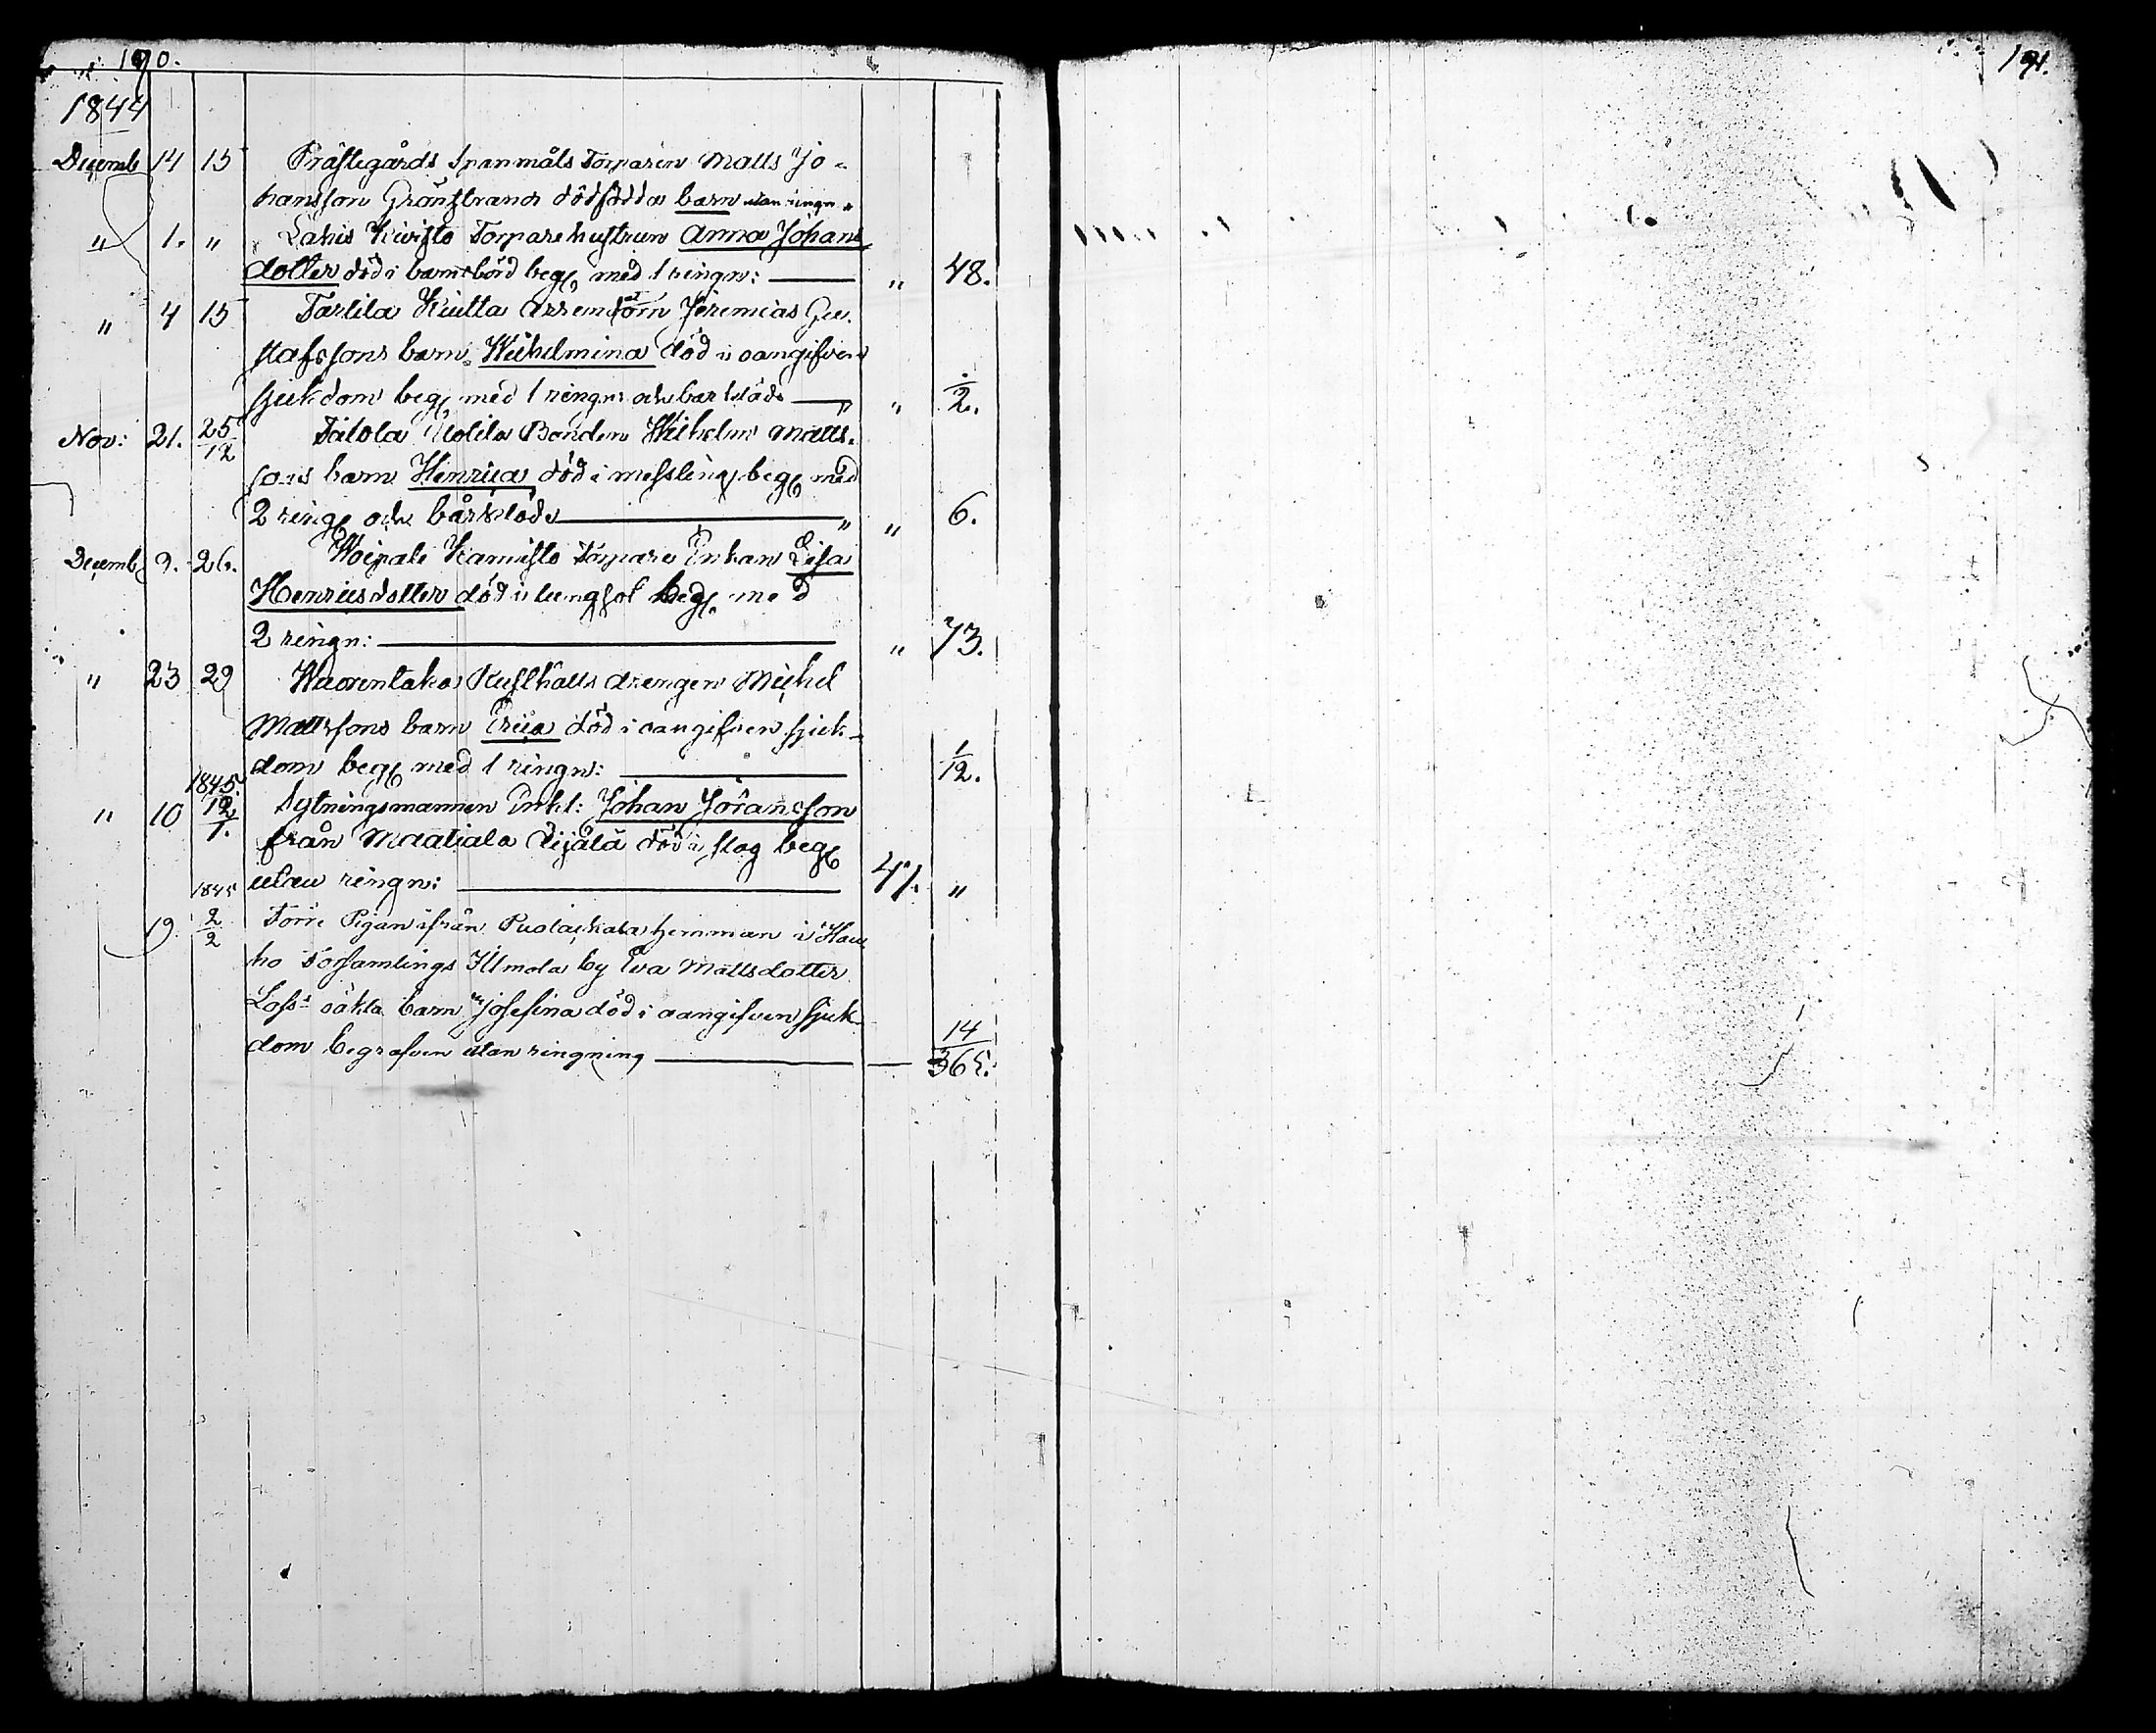 190.
191.
1844
Decemb 14 15 Prästegårds Spanmåls Torparen Matts Jo-
hansson Grönstrands dödfödda barn utan ringn:
" 1. " Lahis Kivistö Torparehustrun Anna Johans
dotter död i barnsbörd begr. med 1 ringn: " 48.
" 4 15 Tartila Kiutta Jeremias Gu-
stafssons barn Wilhelmina död i oangifven
sjukdom begr. med 1 ringn: och bårkläde " " 2.
Nov: 21. 25/12 Bonden Wilhelm Matts-
sons barn Henrica död i messling begr. med
2 ring. och bårkläde " " 6.
Decemb 9. 26. Kannisto Torpare Enkan Lisa
Henricsdotter död i lungsot begr. med
2 ringn: " 73.
" 23 29 Rusthålls drengen Michel
Mattssons barn Erica död i oangifven sjuk-
dom begr. med 1 ringn: 1/12.
" 10 1845 12/1. Sytningsmannen Enkl: Johan Jöransson
från död i slag begr.
utan ringn: 41. "
19. 1845 2/2 Förre Pigan ifrån hemman i Hau
ho Församlings Ilmola by Eva Mattsdotter
oäkta barn Josefina död i oangifven sjuk-
dom begrafven utan ringning 14/365.